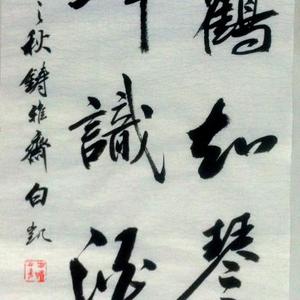 鶴知琴
識酒
之秋鑄雅齋白凱